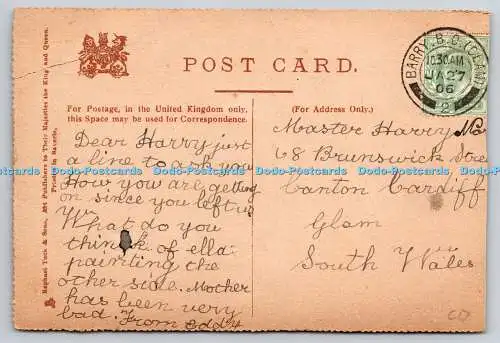 POST CARD.
For Postage, in the United Kingdom only,
this Space may be used for Correspondence.
(For Address Only.)
Raphael Tuck & Sons, Art Publishers to Their Majesties the King and Queen.
Printed in Bavaria.
BARRY. B.O.
10.30AM
JA 27
06
2
Dear Harry just
a line to ask you
How you are getting
on since you left us
What do you
think of ella
painting the
other side. Mother
has been very
bad. From Eddy
Master Harry
68 Brunswick Stree
Canton Cardiff
Glam
South Wales
Dodo-Postcards Dodo-Postcards Dodo-Postcards Dodo-Postcards